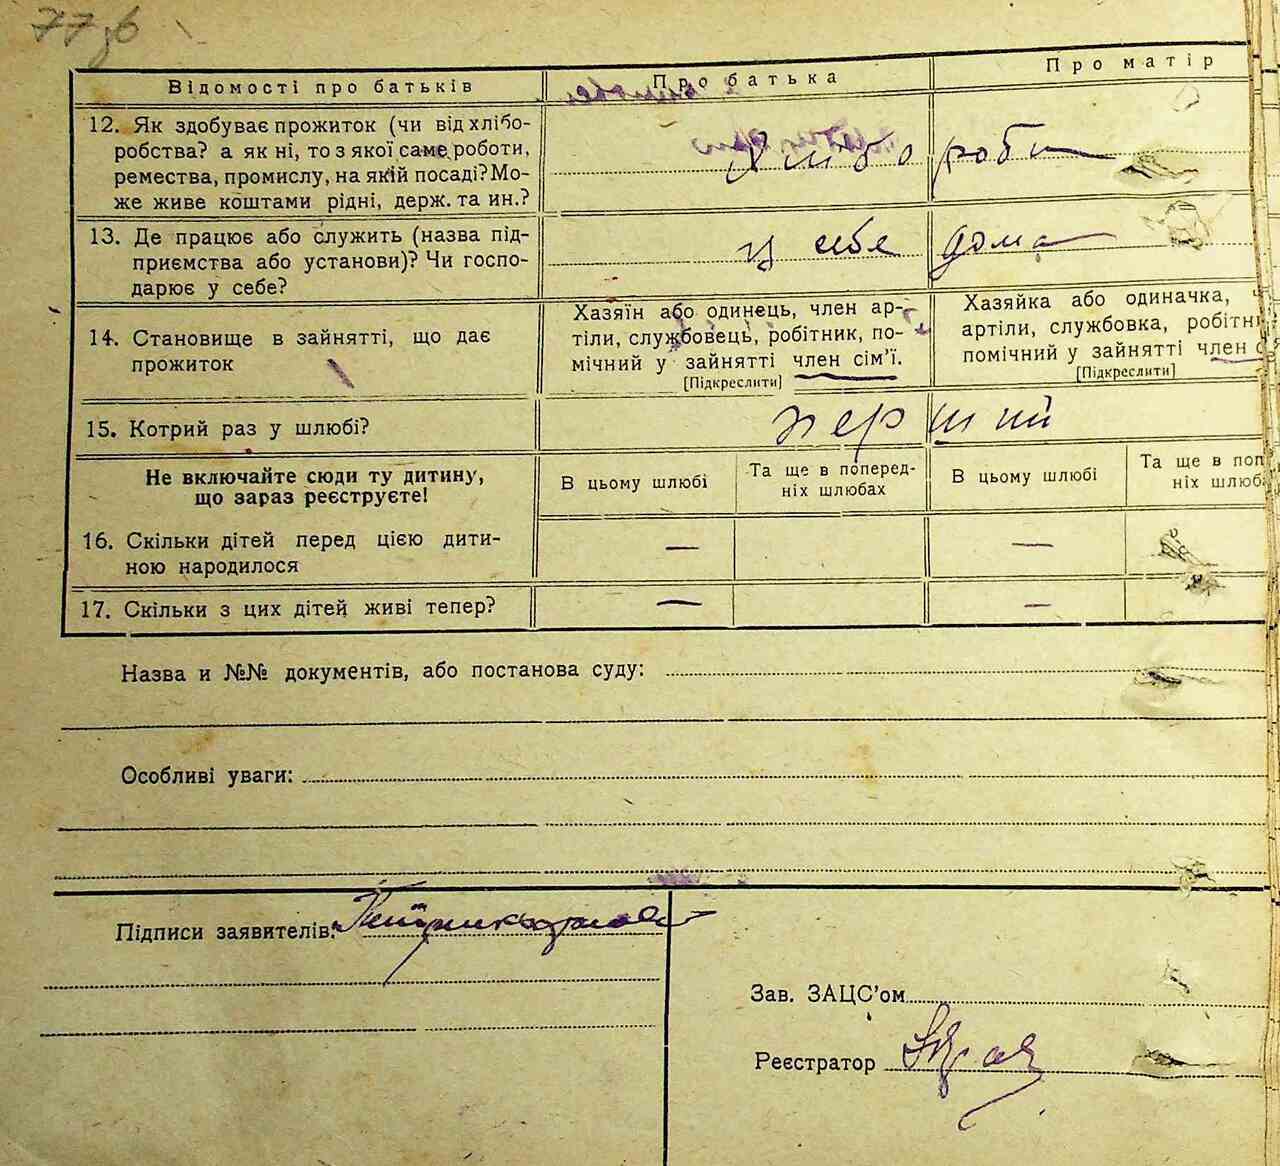 77зв
Відомості про батьків
Про батька
Про матір
12. Як здобуває прожиток (чи від хлібо-
робства? а як ні, то з якої саме роботи,
ремества, промислу, на якій посаді? Мо-
же живе коштами рідні, держ. та ин.?
Хлібороби
13. Де працює або служить (назва під-
приємства або установи)? Чи госпо-
дарює у себе?
у себе дома
14. Становище в зайнятті, що дає
прожиток
Хазяїн або одинець, член ар-
тіли, службовець, робітник, по-
мічний у зайнятті член сім'ї.
[Підкреслити]
Хазяйка або одиначка,
артіли, службовка, робітни
помічний у зайнятті член с
[Підкреслити]
15. Котрий раз у шлюбі?
перший
Не включайте сюди ту дитину,
що зараз реєструєте!
В цьому шлюбі
Та ще в поперед-
ніх шлюбах
В цьому шлюбі
Та ще в поп
ніх шлюб
16. Скільки дітей перед цією дити-
ною народилося
—
—
17. Скільки з цих дітей живі тепер?
—
—
Назва и №№ документів, або постанова суду:
Особливі уваги:
Підписи заявителів:
Зав. ЗАЦС'ом
Реєстратор